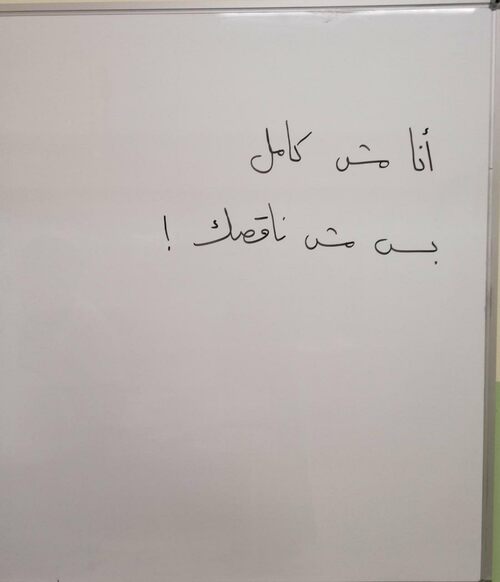 أنا مش كامل
بس مش ناقصك !